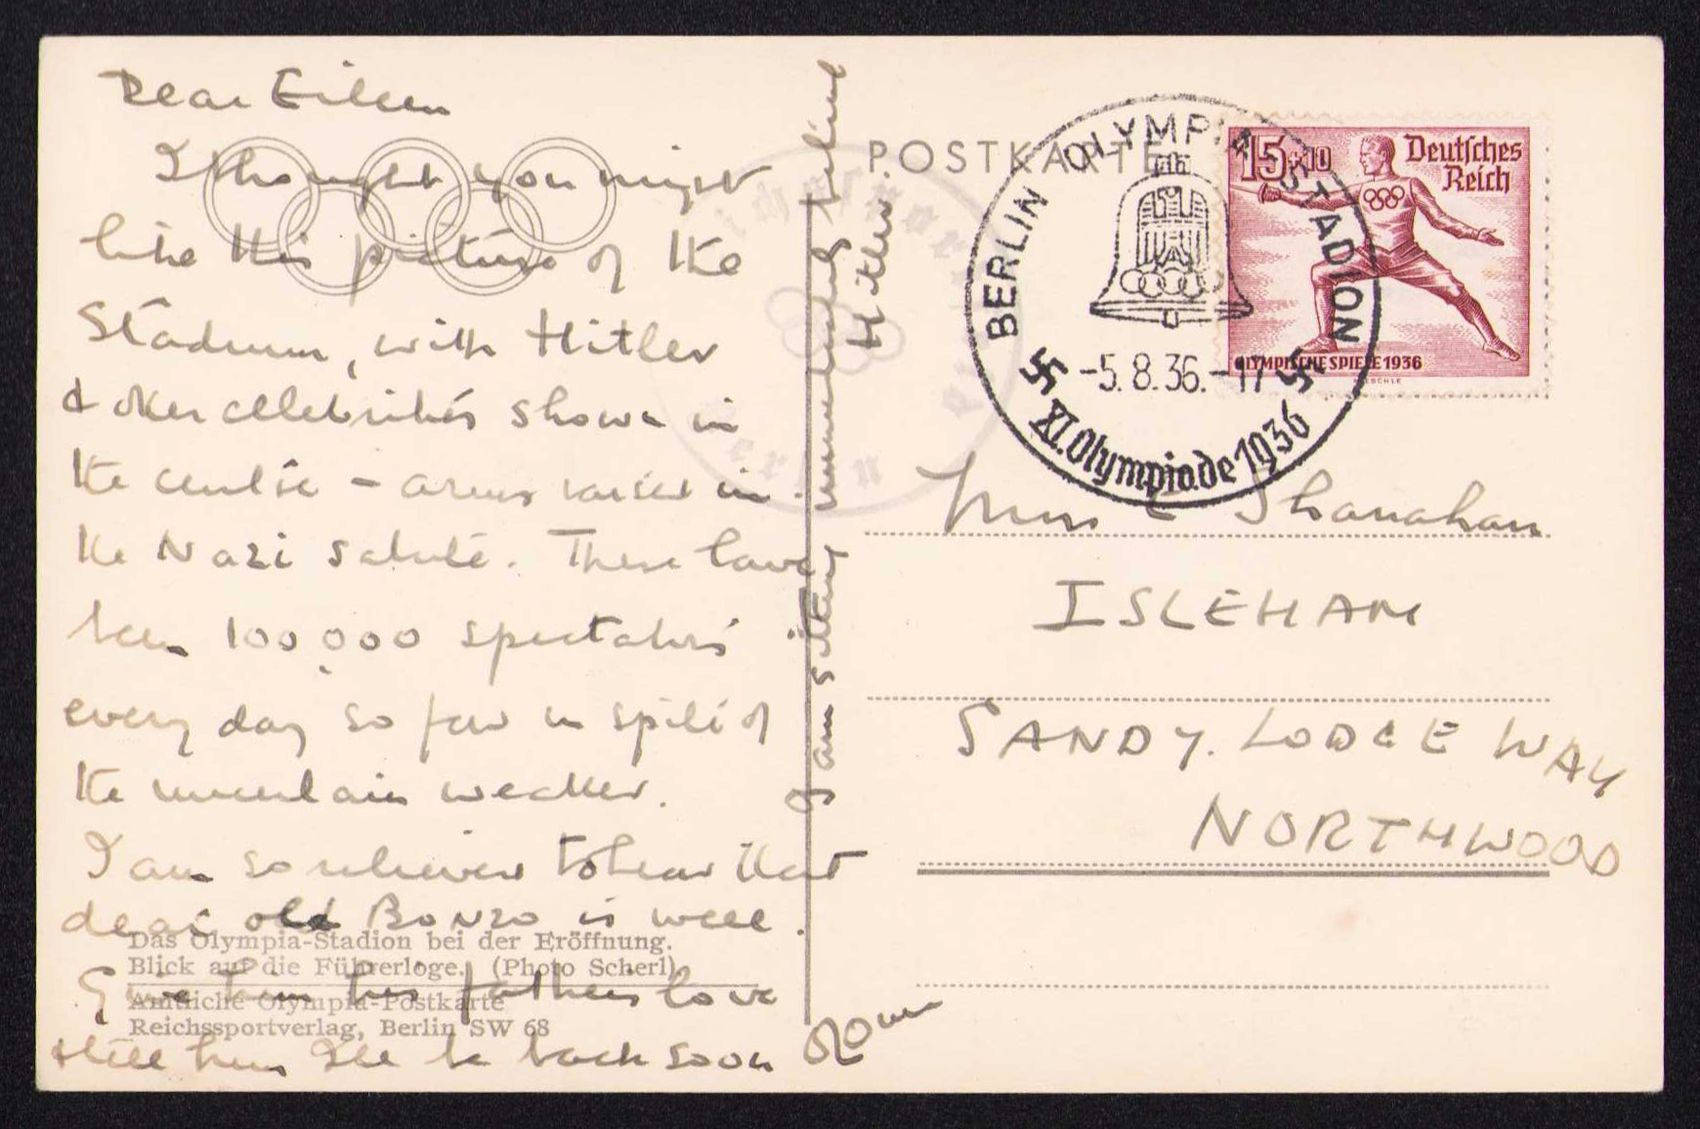 Dear Eileen
I thought you might
like this picture of the
Stadium, with Hitler
& other celebrities shown in
the centre – arms raised in
the Nazi salute. There have
been 100,000 spectators
every day so far in spite of
the uncertain weather.
I am so relieved to hear that
dear old Bonzo is well.
Give him his fathers love
& tell him I'll be back soon
I am sitting immediately behind
Hitler.
Das Olympia-Stadion bei der Eröffnung.
Blick auf die Führerloge. (Photo Scherl)
Amtliche Olympia-Postkarte
Reichssportverlag, Berlin SW 68
POSTKARTE
BERLIN OLYMPIA-STADION
-5.8.36.-17
XI. Olympiade 1936
15+10
Deutsches
Reich
OLYMPISCHE SPIELE 1936
Shanahan
ISLEHAM
SANDY. LODGE WAY
NORTHWOOD